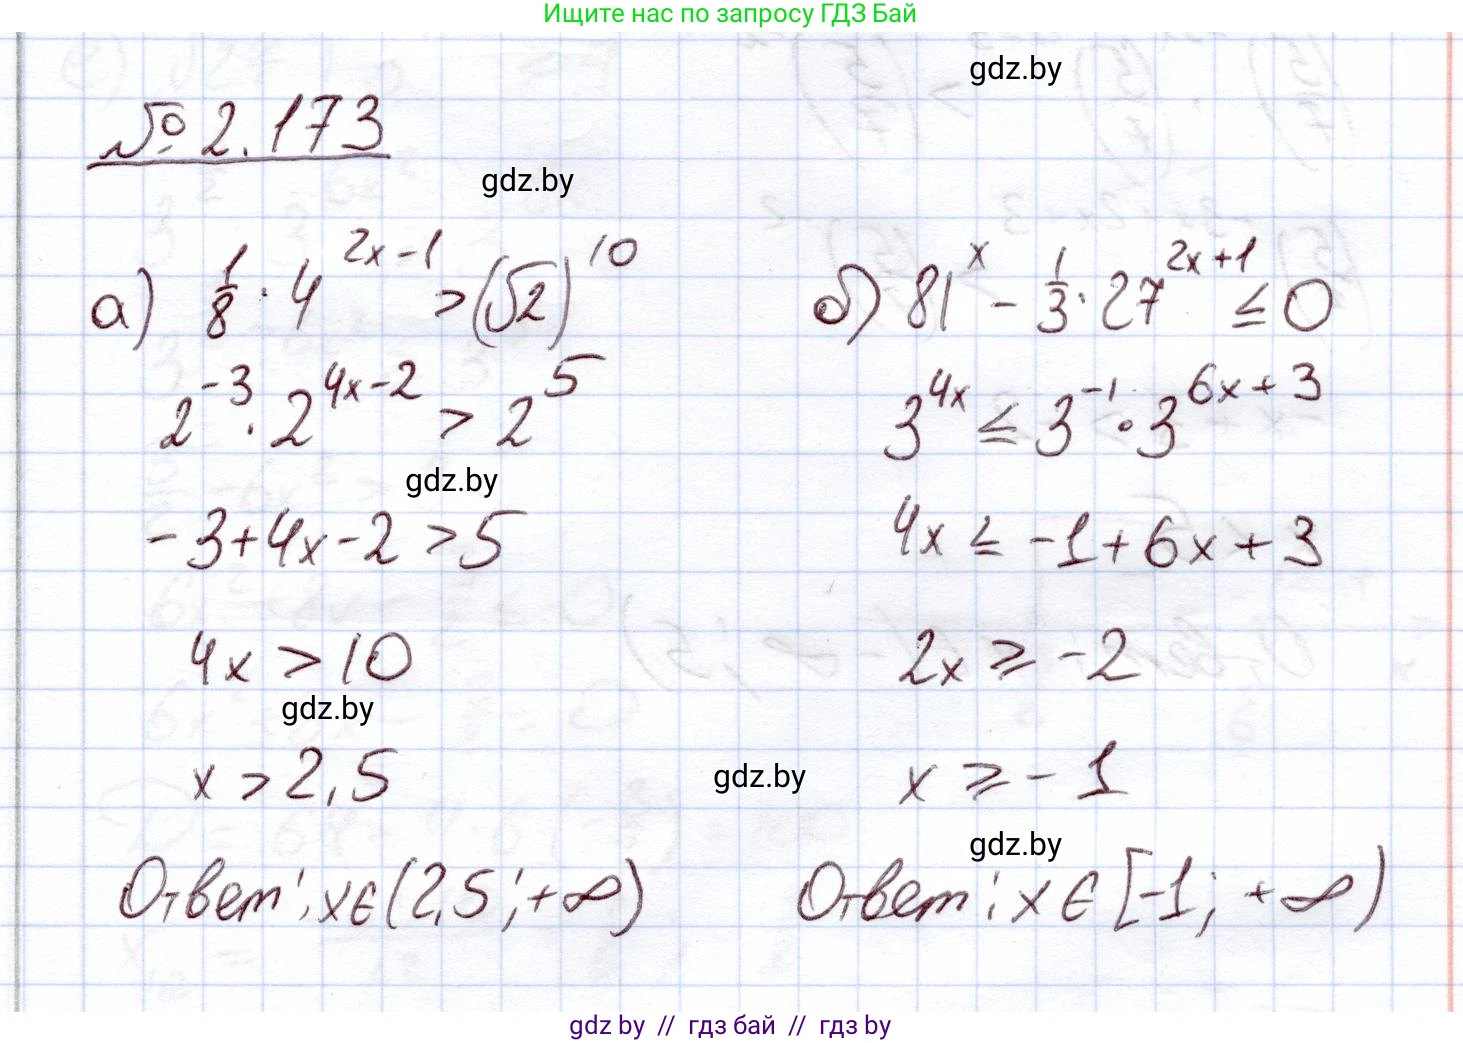 Ищите нас по запросу ГДЗ Бай
gdz.by
№ 2.173
gdz.by
а) 1/8 · 4^(2x-1) > (√2)^10
2^(-3) · 2^(4x-2) > 2^5
gdz.by
-3+4x-2 > 5
4x > 10
gdz.by
x > 2,5
Ответ: x∈(2,5; +∞)
б) 81^x - 1/3 · 27^(2x+1) ≤ 0
3^(4x) ≤ 3^(-1) · 3^(6x+3)
4x ≤ -1+6x+3
2x ≥ -2
gdz.by
x ≥ -1
gdz.by
Ответ: x ∈ [-1; +∞)
gdz by // гдз бай // гдз by